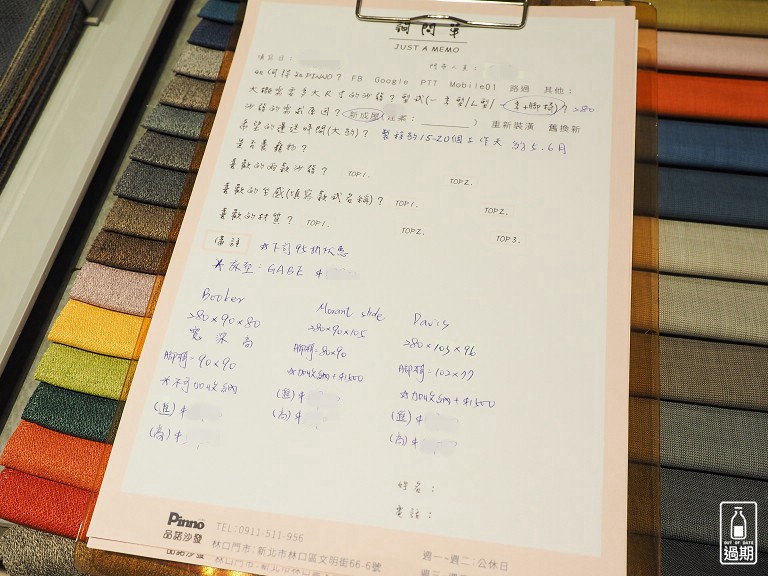 詢問單
JUST A MEMO
填寫日：
門市人員：
如何得知PINNO？ FB Google PTT Mobile01 路過 其他：
大概需要多大尺寸的沙發？型式(一字型/L型/一字+腳椅)？ 280
沙發的需求原因？ 新成屋(建案： ) 重新裝潢 舊換新
希望的運送時間(大約)？ 製程約15-20個工作天 約5.6月
是否養寵物？
喜歡的兩款沙發？ TOP1. TOP2.
喜歡的坐感(填寫款式名稱)？ TOP1. TOP2.
喜歡的材質？ TOP1. TOP2. TOP3.
備註 ☆下訂95折優惠
☆床墊：GABE $
Booker
280×90×80
寬 深 高
腳椅=90×90
☆不可加收納
(進)$
(高)$
Morant slide
280×90×105
腳椅=80×90
☆加收納+$1500
(進)$
(高)$
Davis
280×103×96
腳椅=102×77
☆加收納+$1500
(進)$
(高)$
姓名：
電話：
Pinno
品諾沙發
TEL:0911-511-956
林口門市:新北市林口區文明街66-6號
週一~週二:公休日
品諾沙發
林口門市:新北市林口區文明街66-6號
OUT OF DATE
過期